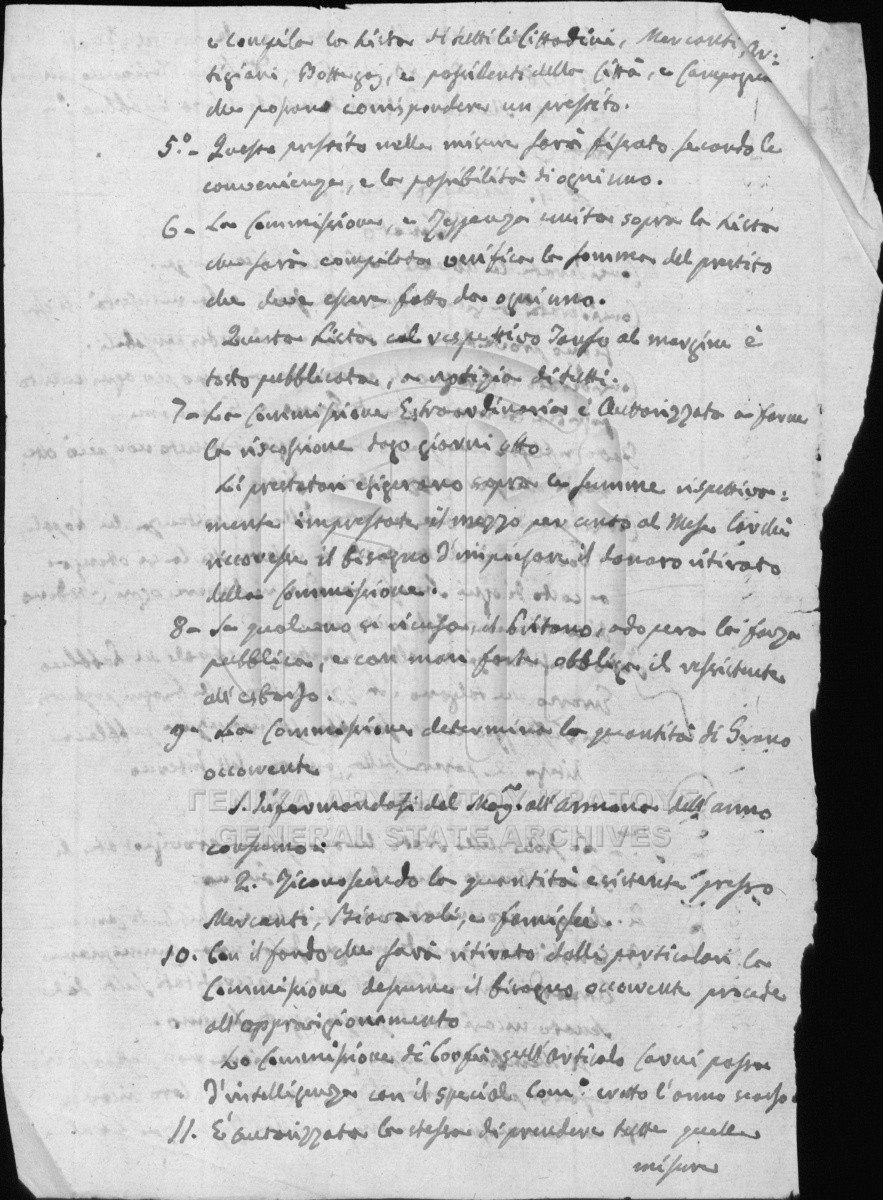 e compila la Lista di tutti li Cittadini, Mercanti, Ar-
tigiani, Bottegaj, e possidenti della Città, e Campagna
che possano corrispondere un prestito.
5.º- Questo prestito nelle misure sarà fissato secondo le
convenienze, e la possibilità di ogniuno.
6- La Commissione, e Reggenza unita sopra la Lista
che sarà compilata verifica la somma del prestito
che deve essere fatto da ogniuno.
Questa Lista col respettivo Tanso al margine è
tosto pubblicata, a notizia di tutti.
7- La Commissione Estraordinaria è Auttorizzata a farne
la riscossione dopo giorni otto
Li prestatori esigerano sopra le summe rispettiva=
mente imprestate il mezzo per cento al Mese
il bisogno d'impiegare il danaro ritirato
della Commissione.
8- Se qualcuno si ricusa, il Pritano, adopera la forza
pubblica, e con man forte obbliga il resistente
all'esborso.
9- La Commissione determina la quantità di Grano
occorrente
1. Informandosi dal Mag.º all'annona dell'anno
consumo:
2. Riconoscendo la quantità esistente presso
Mercanti, Biavaroli, e famiglie.
10. Con il fondo che sarà ritirato dalli particolari la
Commissione desume il bisogno occorrente procede
all'approvigionamento
La Commissione di Corfù sull'articolo Carni passa
d'intelligenza con il speciale Com.º eretto l'anno scorso.
11. È autorizzata la stessa di prendere tutte quelle
misure
ΓΕΝΙΚΑ ΑΡΧΕΙΑ ΤΟΥ ΚΡΑΤΟΥΣ
GENERAL STATE ARCHIVES